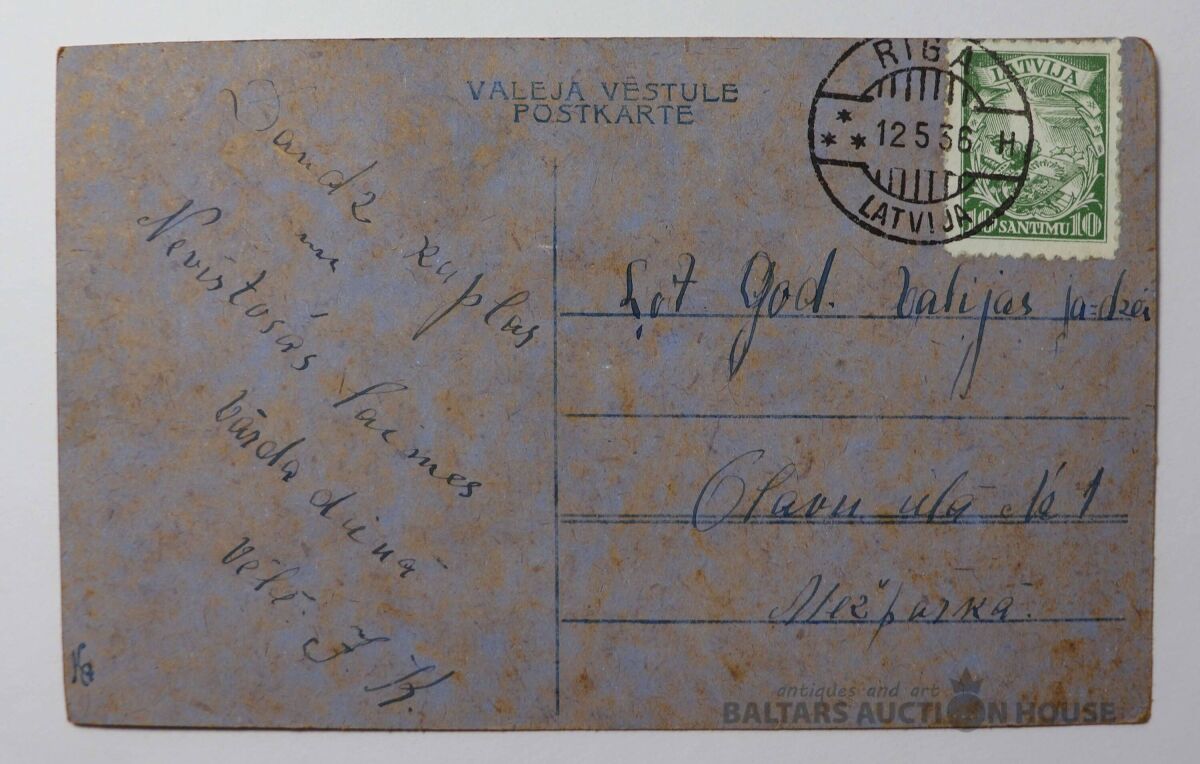 VALĒJA VĒSTULE
POSTKARTE
RIGA
12 5 36 H
LATVIJA
LATVIJA
10 SANTIMU 10
Daudz kuplas
un
Nevīstošās laimes
vārda dienā
vēlē.
J. K.
Ļot. god.
Olavu ielā № 1
Mežparkā.
antiques and art
BALTARS AUCTION HOUSE